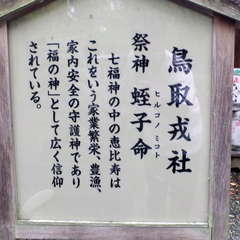 鳥取戎社
祭神 蛭子命
ヒルコノミコト
七福神の中の恵比寿は
これをいう家業繁栄、豊漁、
家内安全の守護神であり
「福の神」として広く信仰
されている。